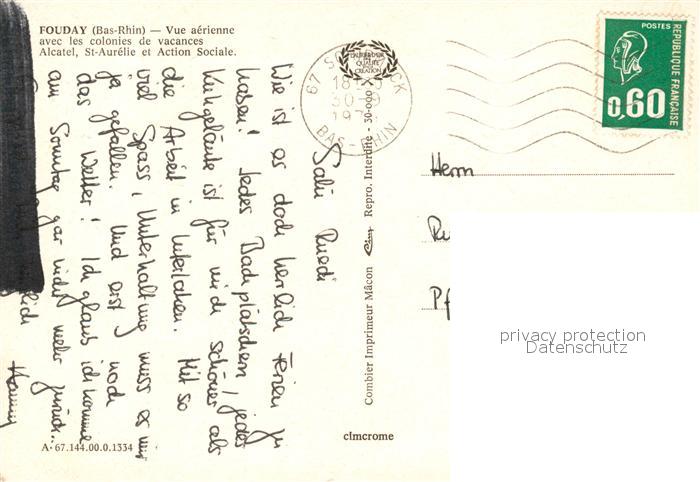 FOUDAY (Bas-Rhin) — Vue aérienne
avec les colonies de vacances
Alcatel, St-Aurélie et Action Sociale.
Salü Ruedi
Wie ist es doch herrlich Ferien zu
haben! Jedes Bachplätschern, jedes
Kuhgeläute ist für mich schöner als
die Arbeit in Interlaken. Mit so
viel Spass, Unterhaltung muss es mir
ja gefallen. Und erst noch
das Wetter! Ich glaub ich komme
am Sonntag gar nicht mehr zurück..
A-67.144.00.0.1334
Combier Imprimeur Mâcon Cim Repro. Interdite - 30-000
cimcrome
67
18H
30-9
BAS-RHIN
POSTES
REPUBLIQUE FRANÇAISE
0,60
Herrn
privacy protection
Datenschutz